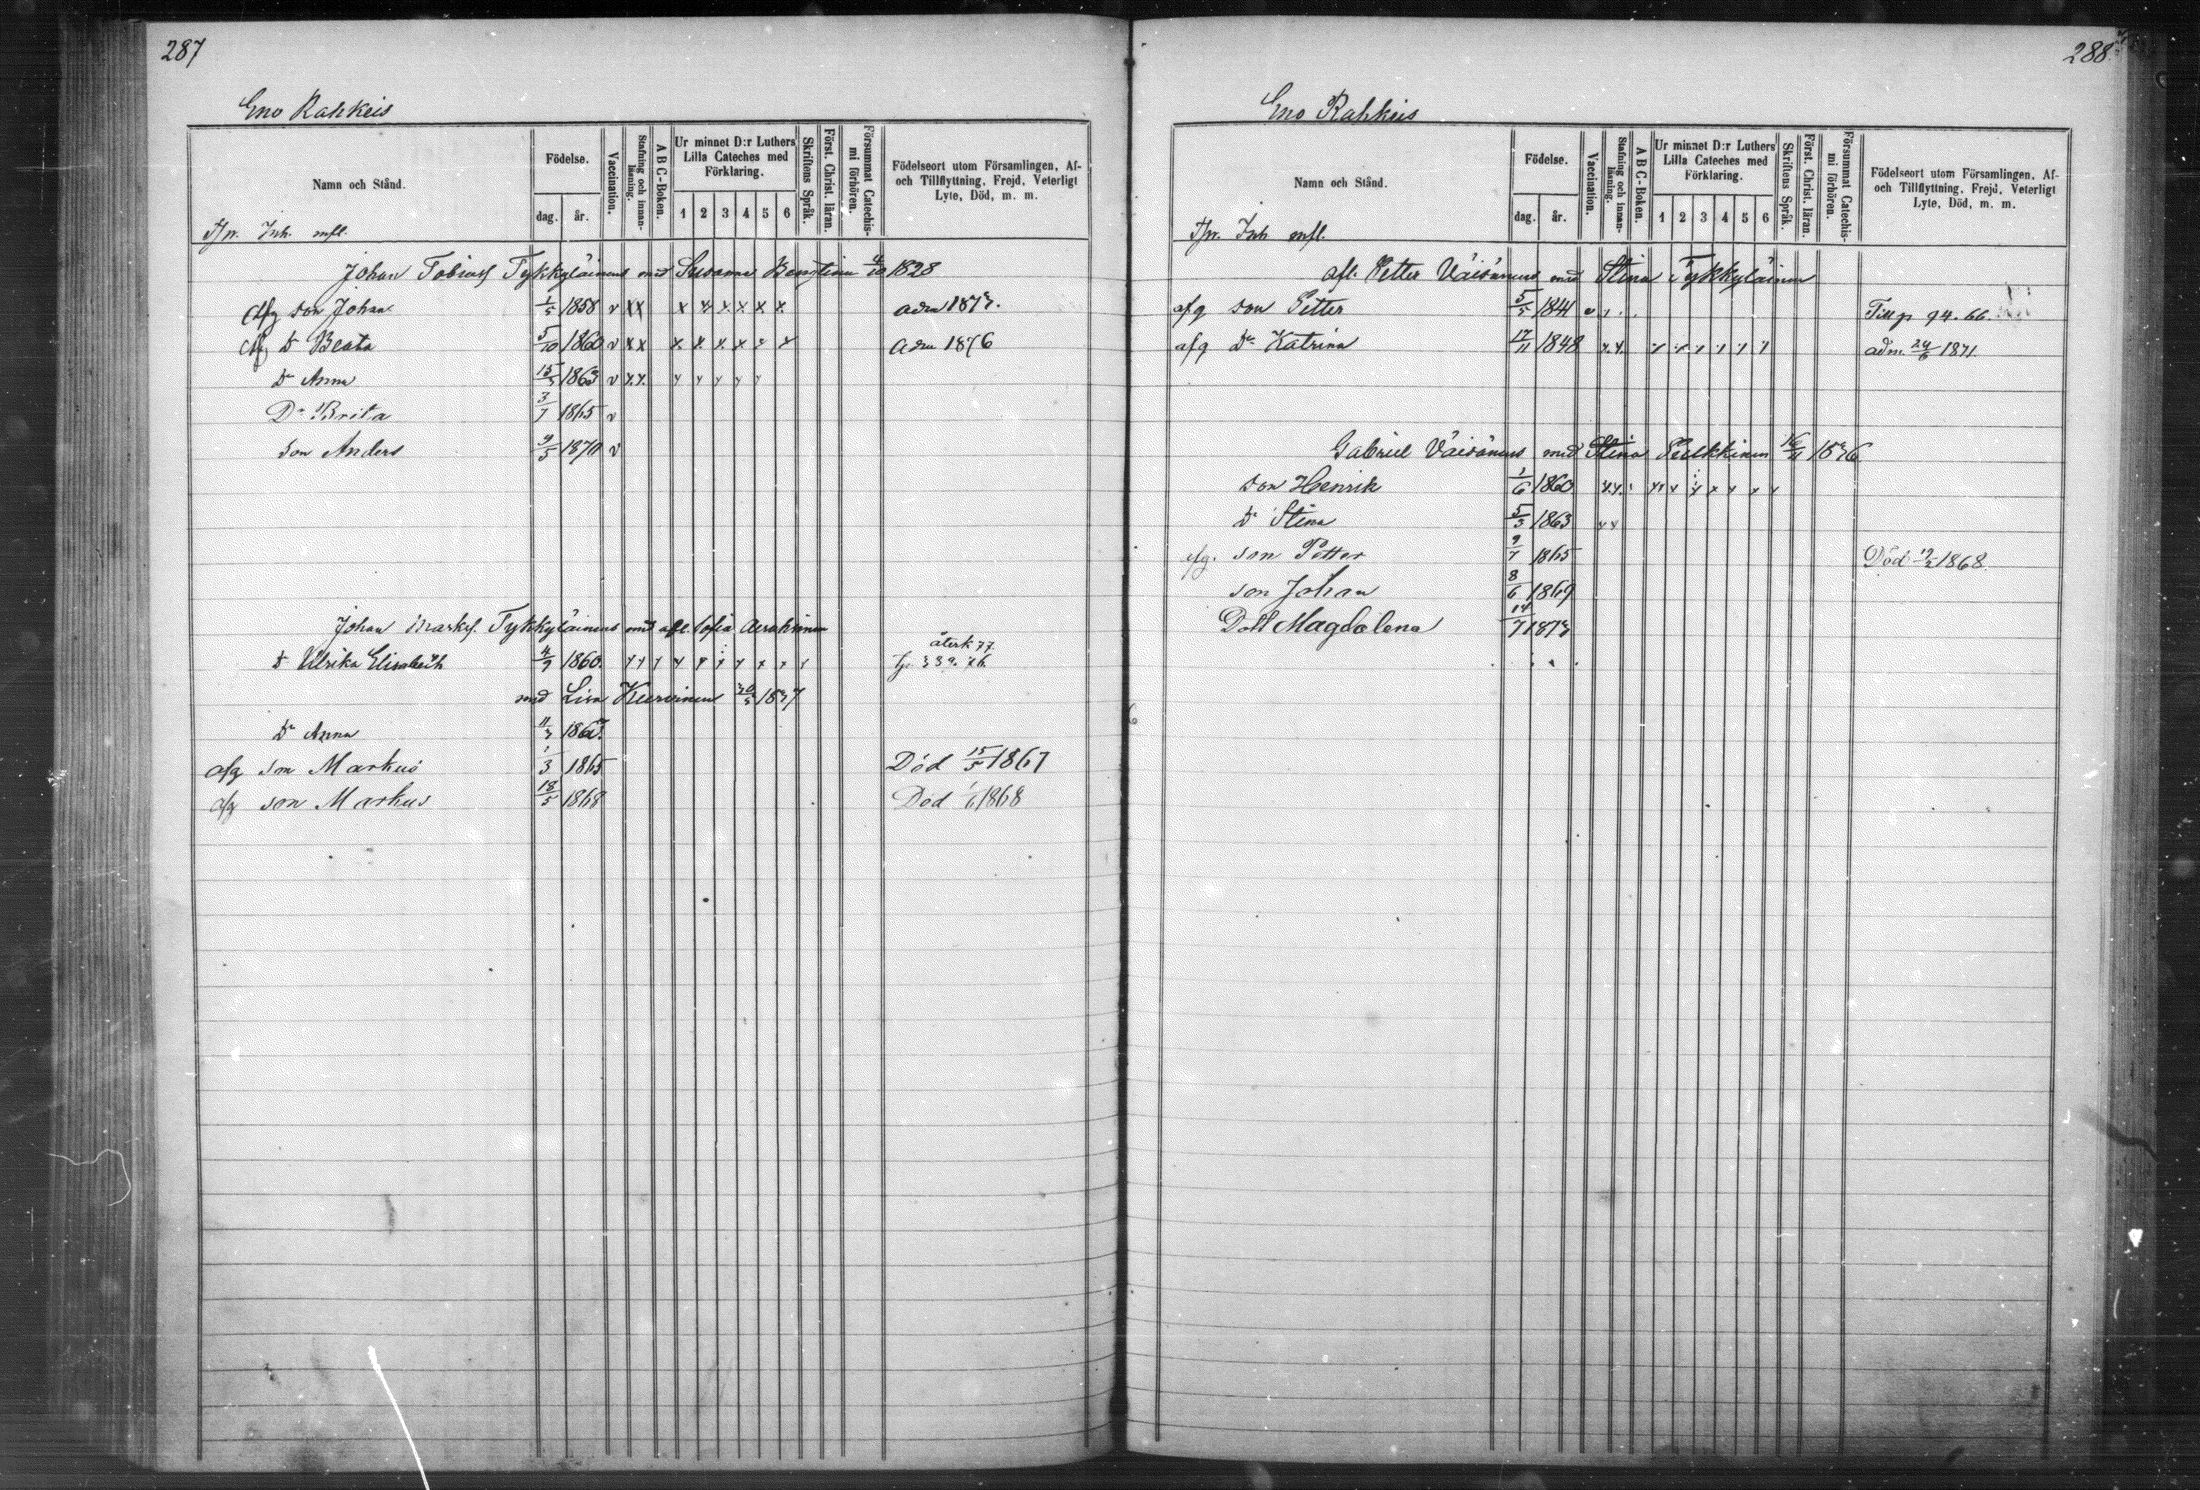 287
Eno Rahkeis
Namn och Stånd.
Födelse.
dag. år.
Vaccination.
Stafning och innanläsning.
A B C-Boken.
Ur minnet D:r Luthers Lilla Cateches med Förklaring.
1 2 3 4 5 6
Skriftens Språk.
Först. Christ. läran.
Försummat Catechismi förhören.
Födelseort utom Församlingen, Af- och Tillflyttning, Frejd, Veterligt Lyte, Död, m. m.
Inh. mfl.
Johan Tobiass Tykkyläinens med Susanna 4/10 1828
afg son Johan 1/5 1858 v x x x x x x x x adm 1873.
afg D Beata 5/10 1860 v x x x x x x x x adm 1876
Dr Anna 15/3 1863 v x x x x x x x
Dr Brita 3/7 1865 v
son Anders 9/5 1870 v
Johan Marks. Tykkyläinens med afl. Sofia
D Ulrika Elisabeth 4/9 1860. x x x x x x x x x x återk 77. 339. 76.
med Lisa 30/3 1837
Dr Anna 11/3 1862.
afg son Markus 1/3 1865 Död 15/5 1867
afg son Markus 18/5 1868 Död 1/6 1868
288
Eno Rahkeis
Namn och Stånd.
Födelse.
dag. år.
Vaccination.
Stafning och innanläsning.
A B C-Boken.
Ur minnet D:r Luthers Lilla Cateches med Förklaring.
1 2 3 4 5 6
Skriftens Språk.
Först. Christ. läran.
Försummat Catechismi förhören.
Födelseort utom Församlingen, Af- och Tillflyttning, Frejd, Veterligt Lyte, Död, m. m.
Inh mfl.
afl. Petter Väisänens med Stina Tykkyläinen
afg son Petter 5/5 1841 v Till p 94. 66.
afg Dr Katrina 17/11 1848 x x x x x x x x adm. 24/6 1871.
Gabriel Väisänens med Stina Pulkkinen 16/11 1836.
son Henrik 1/6 1860 x x x x x x x x x
Dr Stina 5/3 1863 x x
afg. son Petter 9/7 1865 Död 19/2 1868
son Johan 8/6 1869
Dott Magdalena 14/7 1873